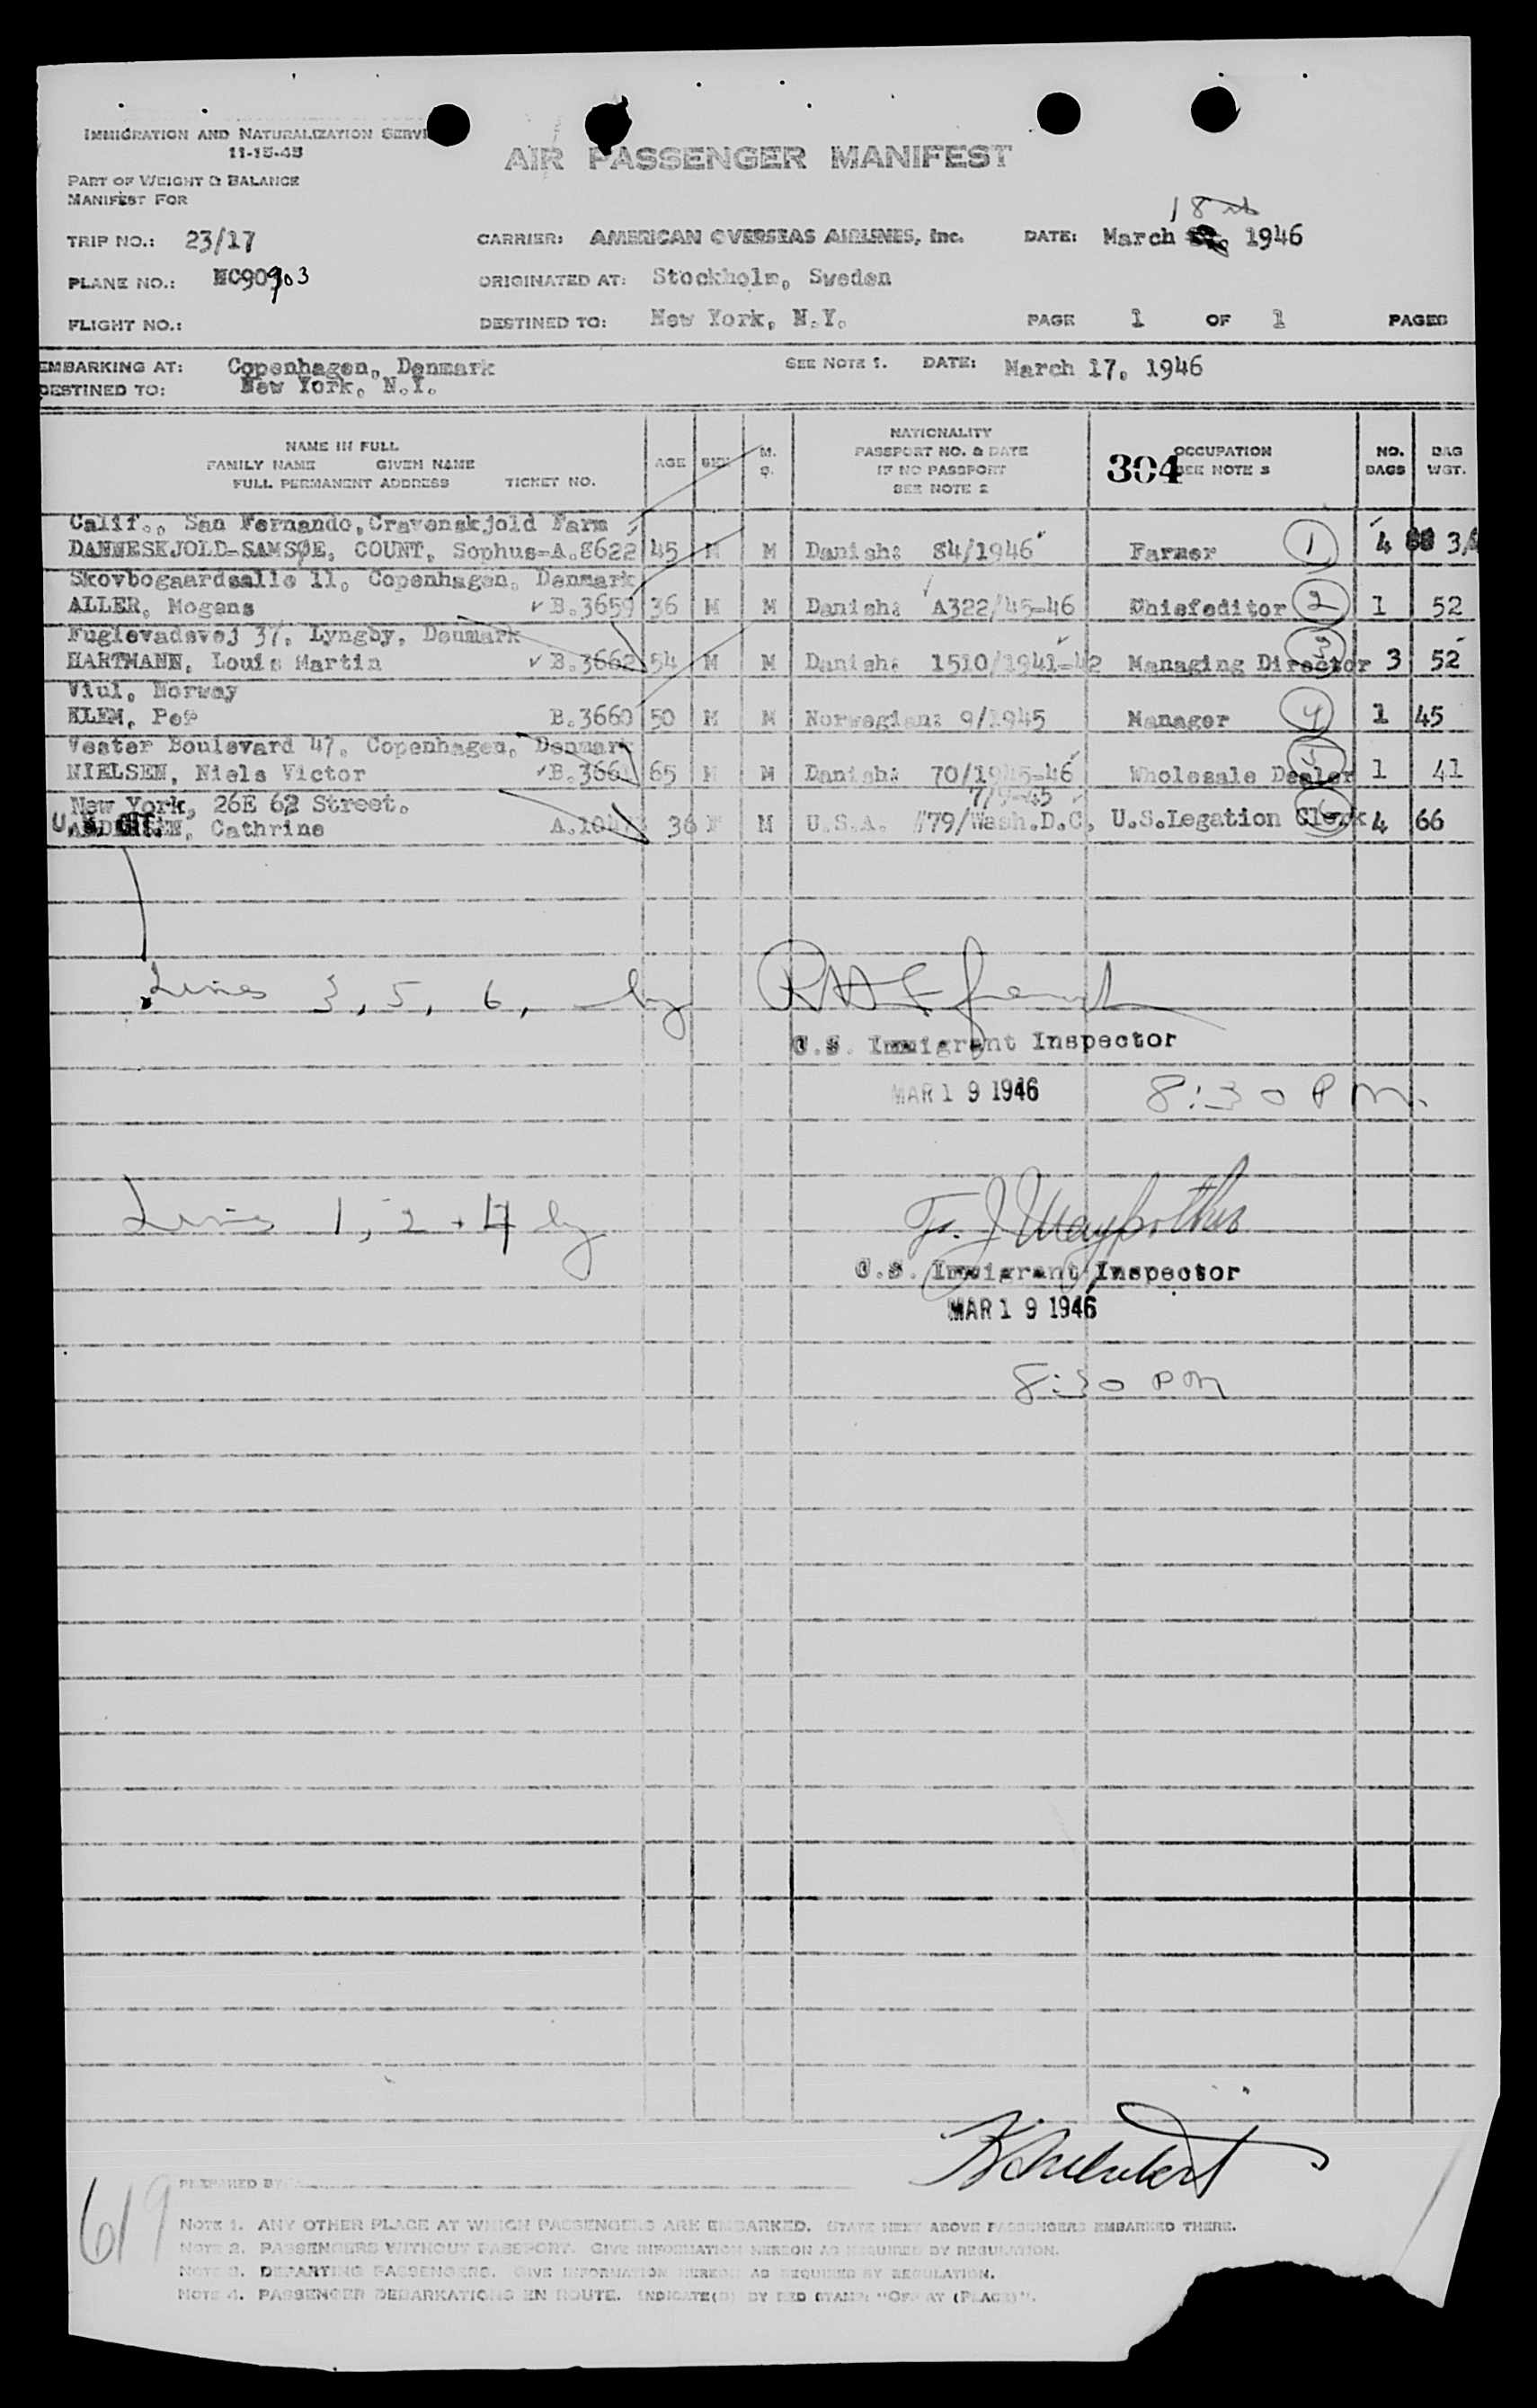 IMMIGRATION AND NATURALIZATION SERVI
11-15-45
AIR PASSENGER MANIFEST
PART OF WEIGHT & BALANCE
MANIFEST FOR
18th
TRIP NO.: 23/17 CARRIER: AMERICAN OVERSEAS AIRLINES, Inc. DATE: March 1946
PLANE NO.: NC90903 ORIGINATED AT: Stockholm, Sweden
FLIGHT NO.: DESTINED TO: New York, N.Y. PAGE 1 OF 1 PAGES
EMBARKING AT: Copenhagen, Denmark SEE NOTE 1. DATE: March 17, 1946
DESTINED TO: New York, N.Y.
NAME IN FULL
FAMILY NAME GIVEN NAME
FULL PERMANENT ADDRESS TICKET NO.
AGE SEX M. S.
NATIONALITY
PASSPORT NO. & DATE
IF NO PASSPORT
SEE NOTE 2
304 OCCUPATION
SEE NOTE 3
NO. BAGS
BAG WGT.
Calif., San Fernando, Cravenskjold Farm
DANNESKJOLD-SAMSØE, COUNT, Sophus-A.8622 45 M M Danish: 84/1946 Farmer 1 4
Skovbogaardsalle 11, Copenhagen, Denmark
ALLER, Mogens B.3659 36 M M Danish: A322/45-46 Chiefeditor 2 1 52
Fuglevadsvej 37, Lyngby, Denmark
HARTMANN, Louis Martin B.3662 54 M M Danish: 1510/1941-42 Managing Director 3 3 52
Viul, Norway
KLEM, Per B.3660 50 M M Norwegian: 9/1945 Manager 4 1 45
Vester Boulevard 47, Copenhagen, Denmark
NIELSEN, Niels Victor B.3661 65 M M Danish: 70/1945-46 Wholesale Dealer 5 1 41
New York, 26E 62 Street. 7/9-45
U.S. CIT. ANDERSEN, Cathrine 36 F M U.S.A. #79/Wash.D.C. U.S.Legation Clerk 6 4 66
Lines 3, 5, 6, by
U.S. Immigrant Inspector
MAR 19 1946 8:30 PM.
Lines 1, 2 + 4 by
U.S. Immigrant Inspector
MAR 19 1946
8:30 PM
619
PREPARED BY:
NOTE 1. ANY OTHER PLACE AT WHICH PASSENGERS ARE EMBARKED. STATE NEXT ABOVE PASSENGERS EMBARKED THERE.
NOTE 2. PASSENGERS WITHOUT PASSPORT. GIVE INFORMATION HEREON AS REQUIRED BY REGULATION.
NOTE 3. DEPARTING PASSENGERS. GIVE INFORMATION HEREON AS REQUIRED BY REGULATION.
NOTE 4. PASSENGER DEBARKATIONS EN ROUTE. INDICATE(D) BY RED STAMP: "OFF AT (PLACE)".